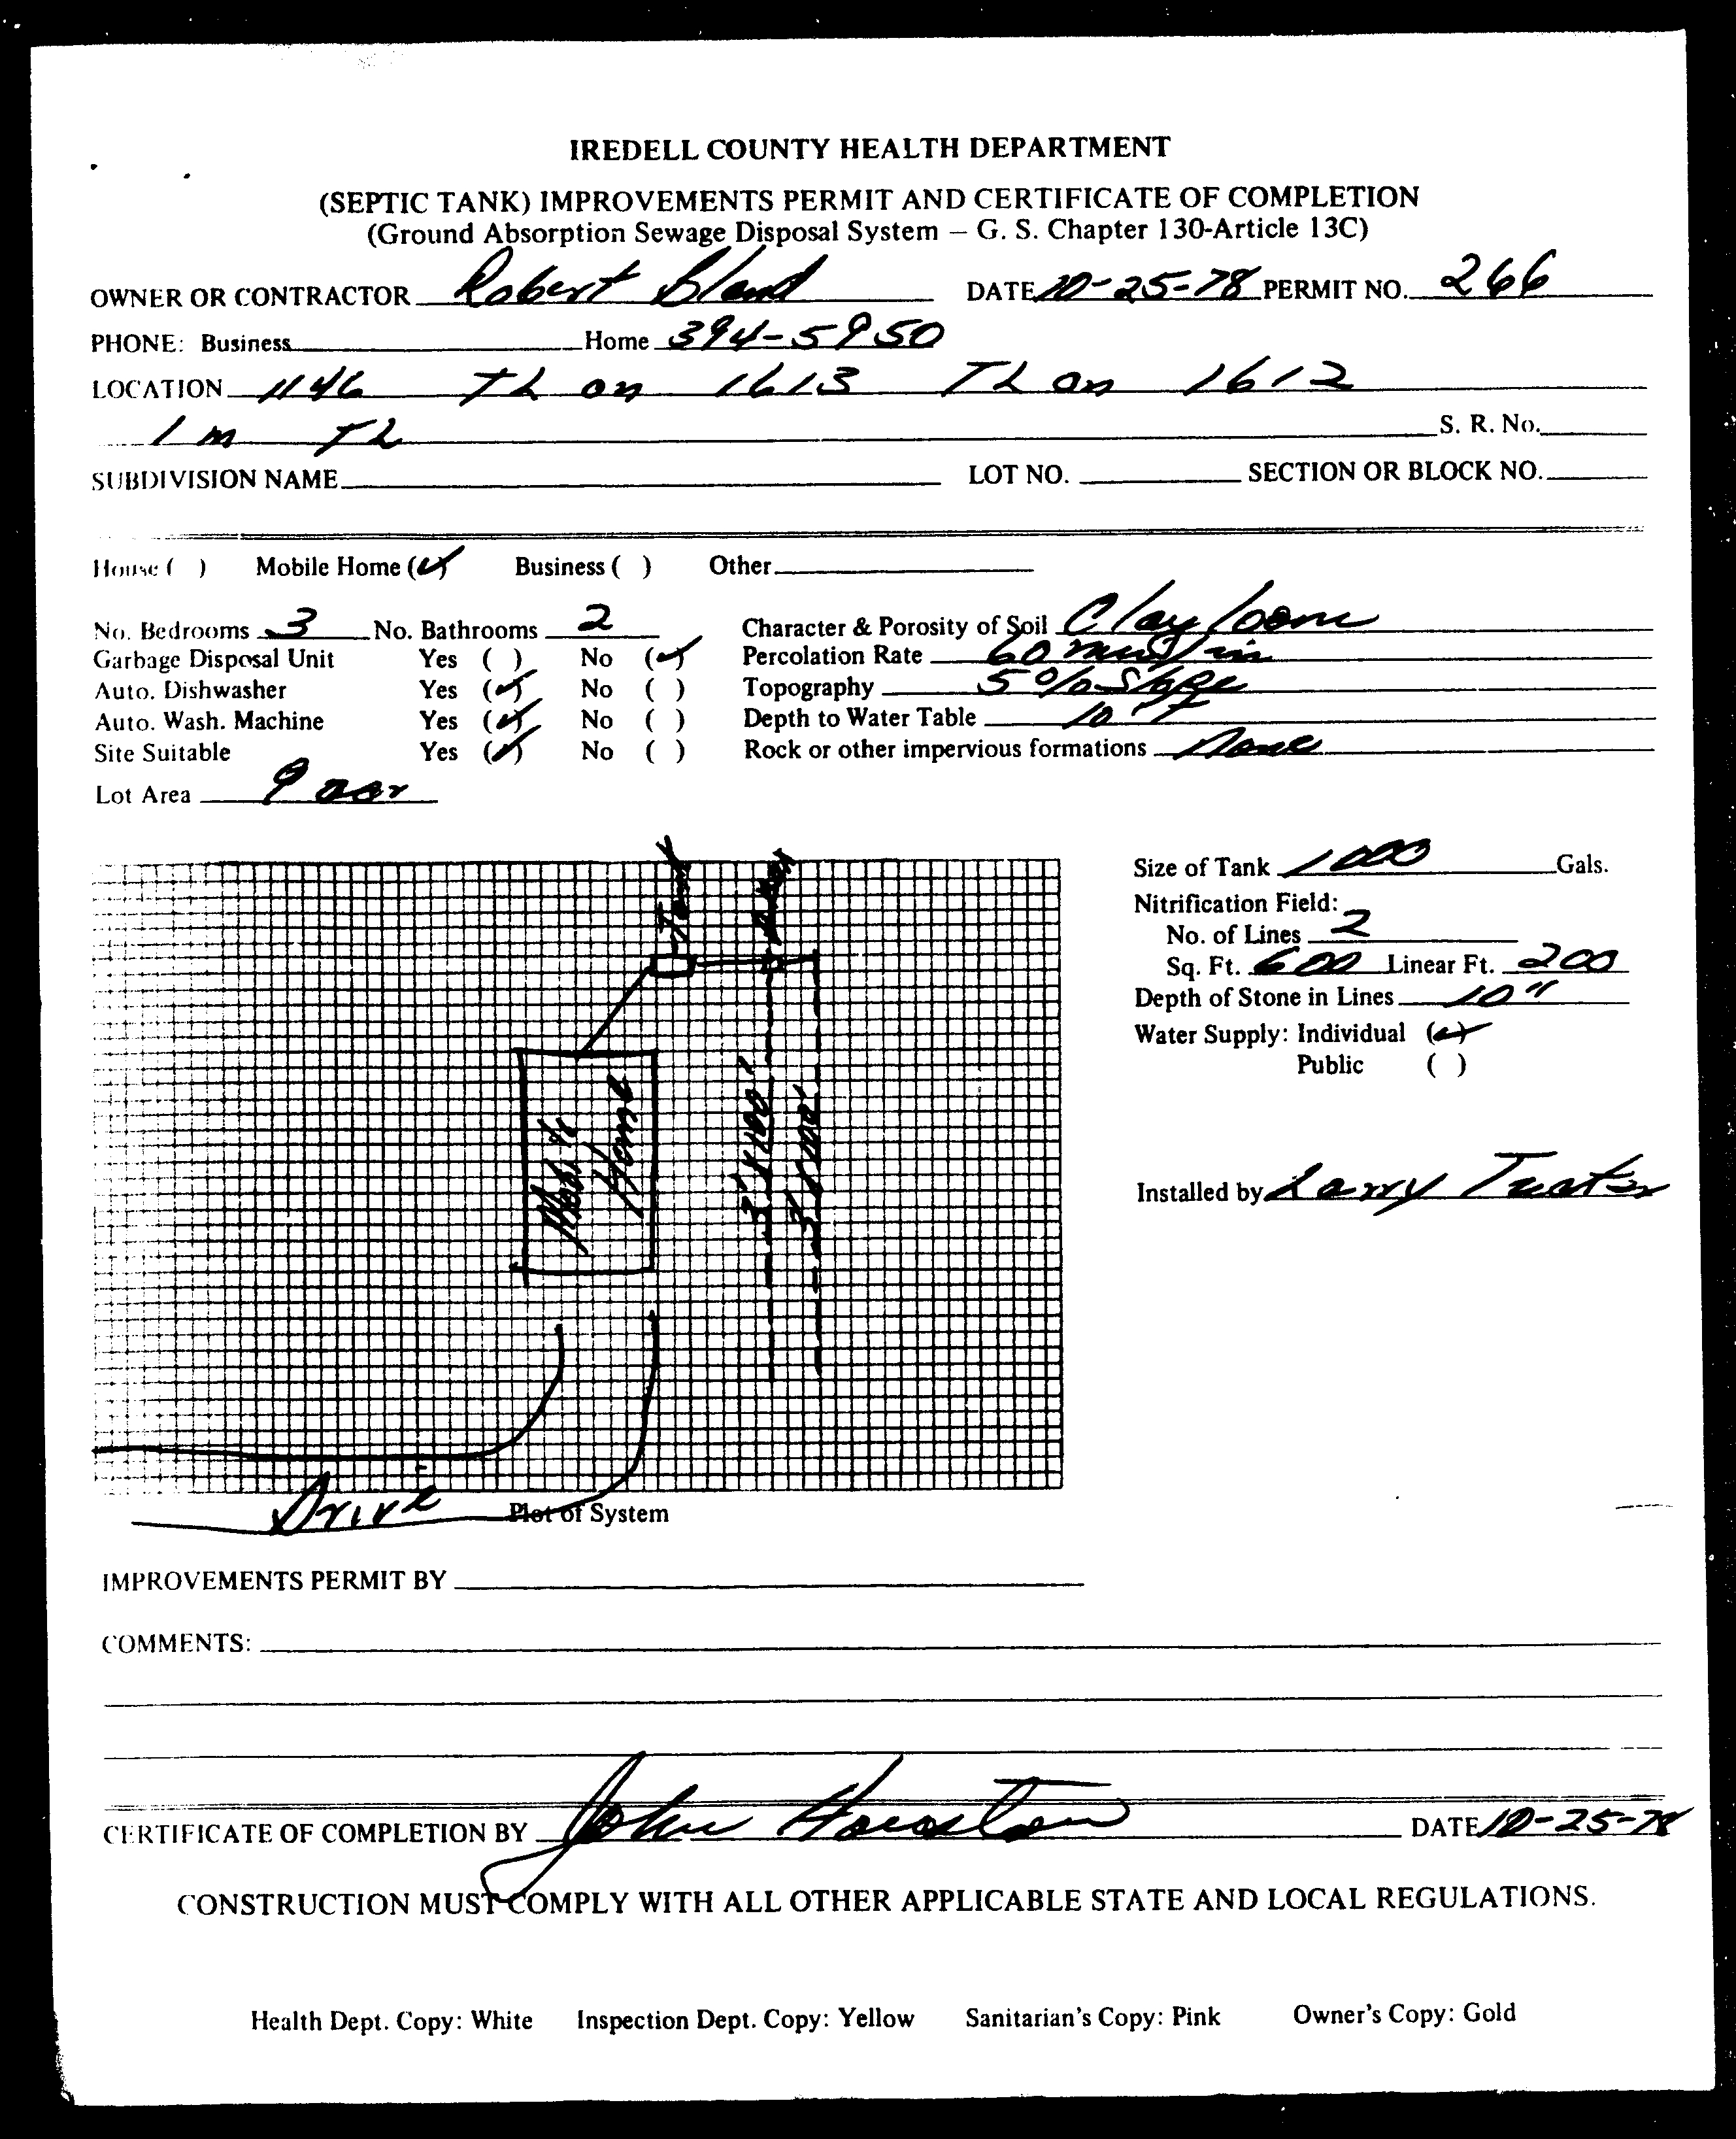 IREDELL COUNTY HEALTH DEPARTMENT
(SEPTIC TANK) IMPROVEMENTS PERMIT AND CERTIFICATE OF COMPLETION
(Ground Absorption Sewage Disposal System – G. S. Chapter 130-Article 13C)
OWNER OR CONTRACTOR Robert Bland DATE 10-25-78 PERMIT NO. 266
PHONE: Business Home 394-5950
LOCATION 1146 TL on 1613 TL on 1612
1 m TL S. R. No.
SUBDIVISION NAME LOT NO. SECTION OR BLOCK NO.
House ( ) Mobile Home (✓) Business ( ) Other
No. Bedrooms 3 No. Bathrooms 2 Character & Porosity of Soil Clay loam
Garbage Disposal Unit Yes ( ) No (✓) Percolation Rate 60 min/in
Auto. Dishwasher Yes (✓) No ( ) Topography 5% Slope
Auto. Wash. Machine Yes (✓) No ( ) Depth to Water Table 10 FT
Site Suitable Yes (✓) No ( ) Rock or other impervious formations None
Lot Area 9
Tank
Size of Tank 1000 Gals.
Nitrification Field:
No. of Lines 2
Sq. Ft. 600 Linear Ft. 200
Depth of Stone in Lines 10"
Water Supply: Individual (✓)
Public ( )
Mobile
Home
3' X 100'
3' X 100'
Installed by Larry
Drive
Plot of System
IMPROVEMENTS PERMIT BY
COMMENTS:
CERTIFICATE OF COMPLETION BY John Houston DATE 10-25-78
CONSTRUCTION MUST COMPLY WITH ALL OTHER APPLICABLE STATE AND LOCAL REGULATIONS.
Health Dept. Copy: White Inspection Dept. Copy: Yellow Sanitarian's Copy: Pink Owner's Copy: Gold